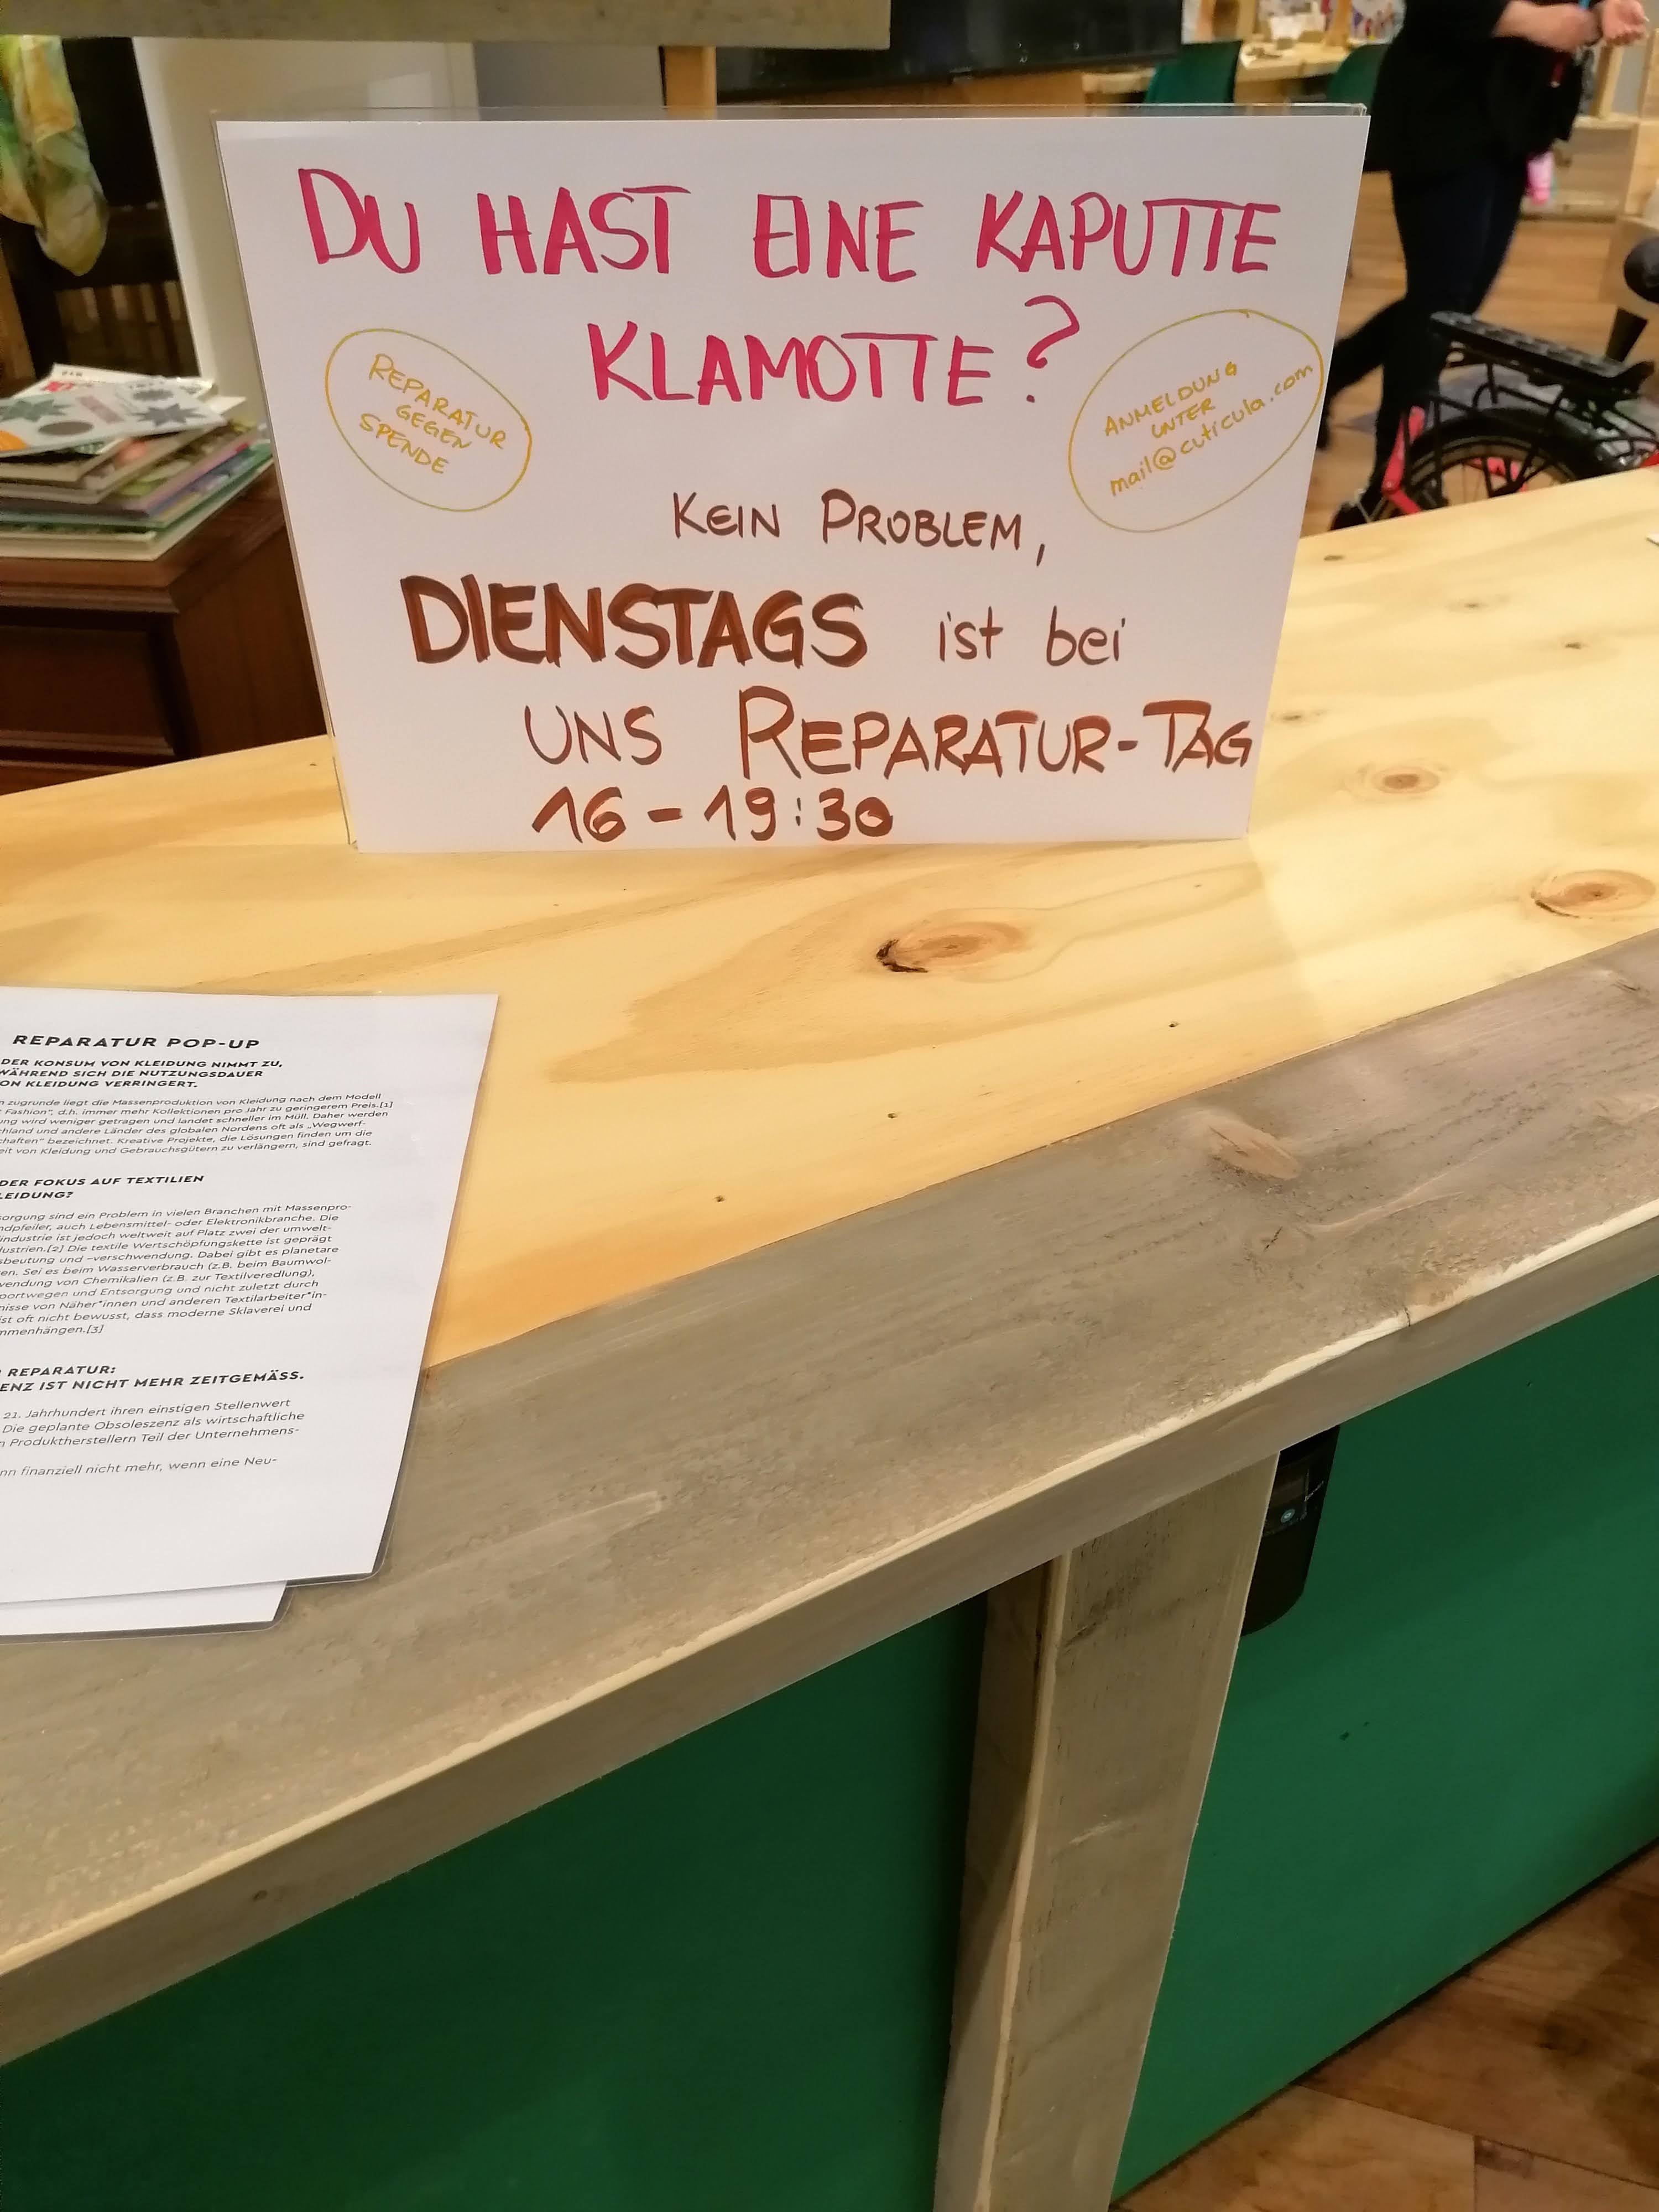 DU HAST EINE KAPUTTE
KLAMOTTE?
REPARATUR
GEGEN
SPENDE
ANMELDUNG
UNTER
mail@cuticula.com
KEIN PROBLEM,
DIENSTAGS ist bei
UNS REPARATUR-TAG
16-19:30
REPARATUR POP-UP
DER KONSUM VON KLEIDUNG NIMMT ZU,
WÄHREND SICH DIE NUTZUNGSDAUER
ON KLEIDUNG VERRINGERT.
n zugrunde liegt die Massenproduktion von Kleidung nach dem Modell
Fashion", d.h. immer mehr Kollektionen pro Jahr zu geringerem Preis.[1]
ung wird weniger getragen und landet schneller im Müll. Daher werden
chland und andere Länder des globalen Nordens oft als „Wegwerf-
chaften" bezeichnet. Kreative Projekte, die Lösungen finden um die
eit von Kleidung und Gebrauchsgütern zu verlängern, sind gefragt.
DER FOKUS AUF TEXTILIEN
LEIDUNG?
sorgung sind ein Problem in vielen Branchen mit Massenpro-
ndpfeiler, auch Lebensmittel- oder Elektronikbranche. Die
industrie ist jedoch weltweit auf Platz zwei der umwelt-
dustrien.[2] Die textile Wertschöpfungskette ist geprägt
sbeutung und -verschwendung. Dabei gibt es planetare
en. Sei es beim Wasserverbrauch (z.B. beim Baumwol-
wendung von Chemikalien (z.B. zur Textilveredlung),
portwegen und Entsorgung und nicht zuletzt durch
nisse von Näher*innen und anderen Textilarbeiter*in-
ist oft nicht bewusst, dass moderne Sklaverei und
mmenhängen.[3]
REPARATUR:
ENZ IST NICHT MEHR ZEITGEMÄSS.
21. Jahrhundert ihren einstigen Stellenwert
Die geplante Obsoleszenz als wirtschaftliche
n Produktherstellern Teil der Unternehmens-
nn finanziell nicht mehr, wenn eine Neu-